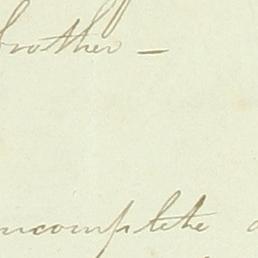 brother —
incomplete